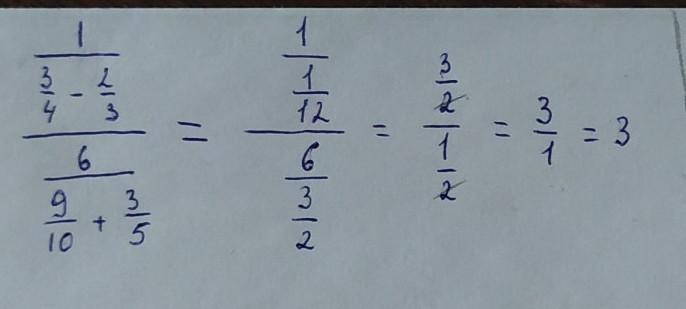 \frac{\frac{1}{\frac{3}{4} - \frac{2}{3}}}{\frac{6}{\frac{9}{10} + \frac{3}{5}}} = \frac{\frac{1}{\frac{1}{12}}}{\frac{6}{\frac{3}{2}}} = \frac{\frac{3}{2}}{\frac{1}{2}} = \frac{3}{1} = 3